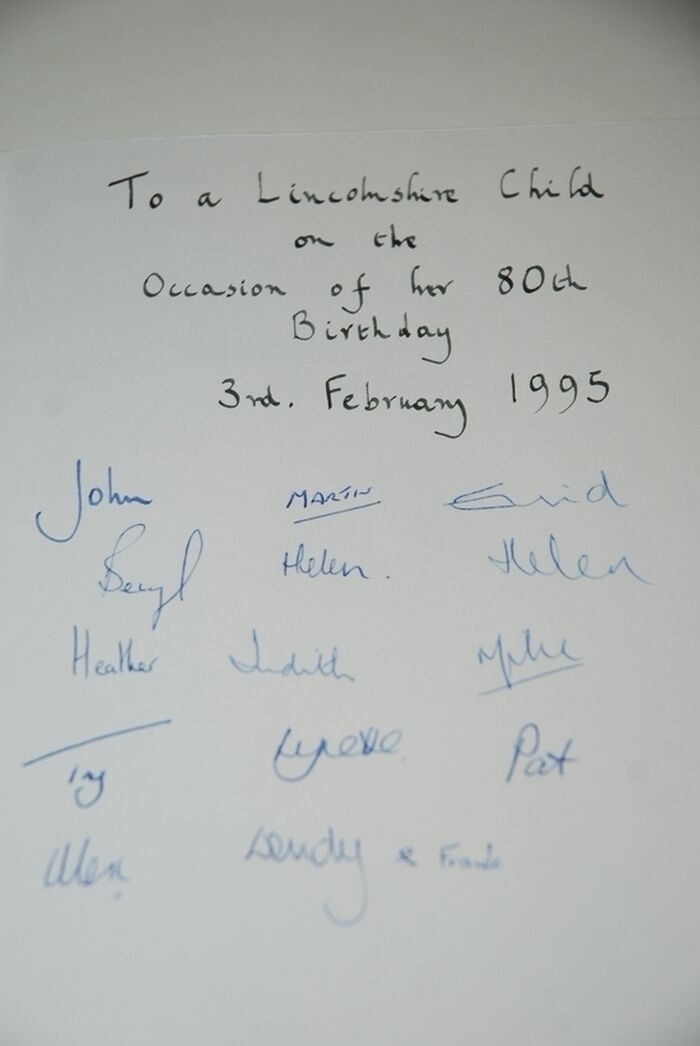 To a Lincolnshire Child
on the
Occasion of her 80th
Birthday
3rd. February 1995
John MARTIN Enid
Beryl Helen. Helen
Heather Judith Mike
Lynette Pat
Wendy & Frank